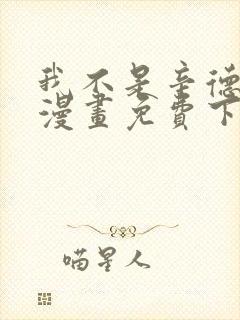 我不是辛德
漫畫免費下
喵星人